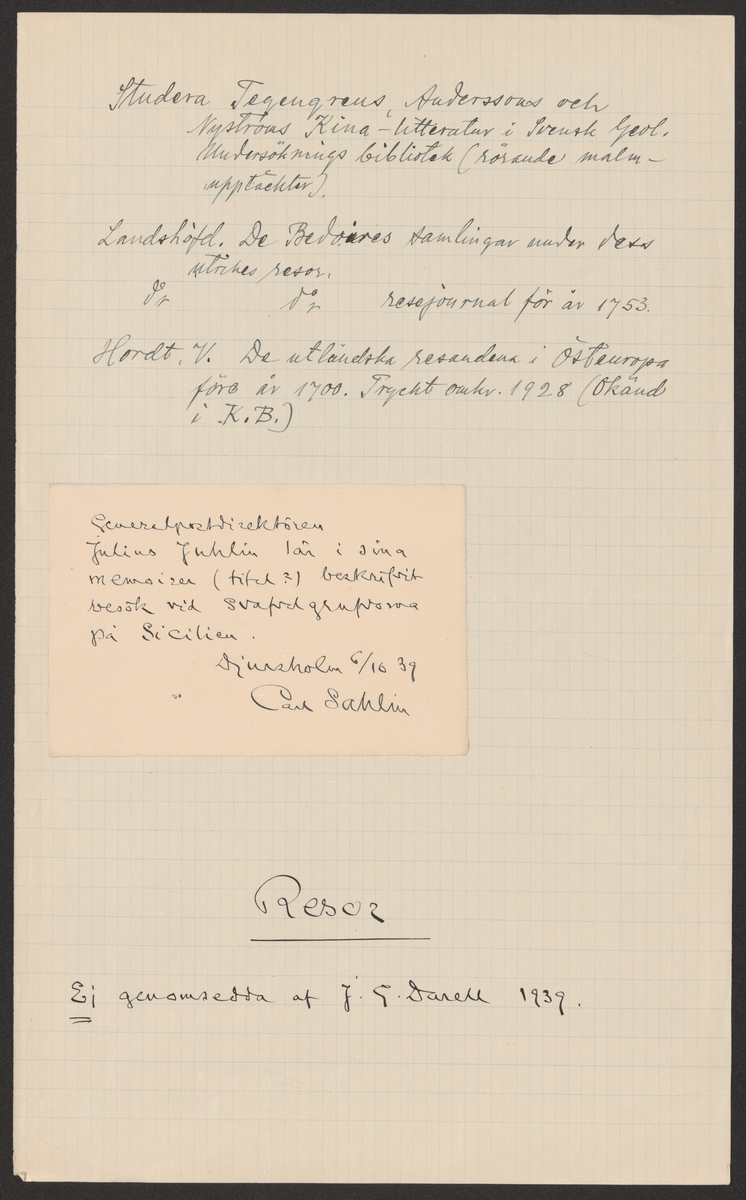 Studera Tegengrens, Anderssons och
Nyströms Kina-litteratur i Svensk Geol.
Undersöknings bibliotek (rörande malm-
upptäckter).
Landshöfd. De Bedoires samlingar under dess
utrikes resor.
d:r d:r resejournal för år 1753.
Hordt, V. De utländska resandena i Östeuropa
före år 1700. Tryckt omkr. 1928 (Okänd
i K.B.)
Generalpostdirektören
Julius Juhlin lär i sina
memoirer (titel?) beskrifvit
besök vid svafvelgrufvorna
på Sicilien.
Djursholm 6/10 39
Carl Sahlin
Resor
Ej genomsedda af J. G. Darell 1939.